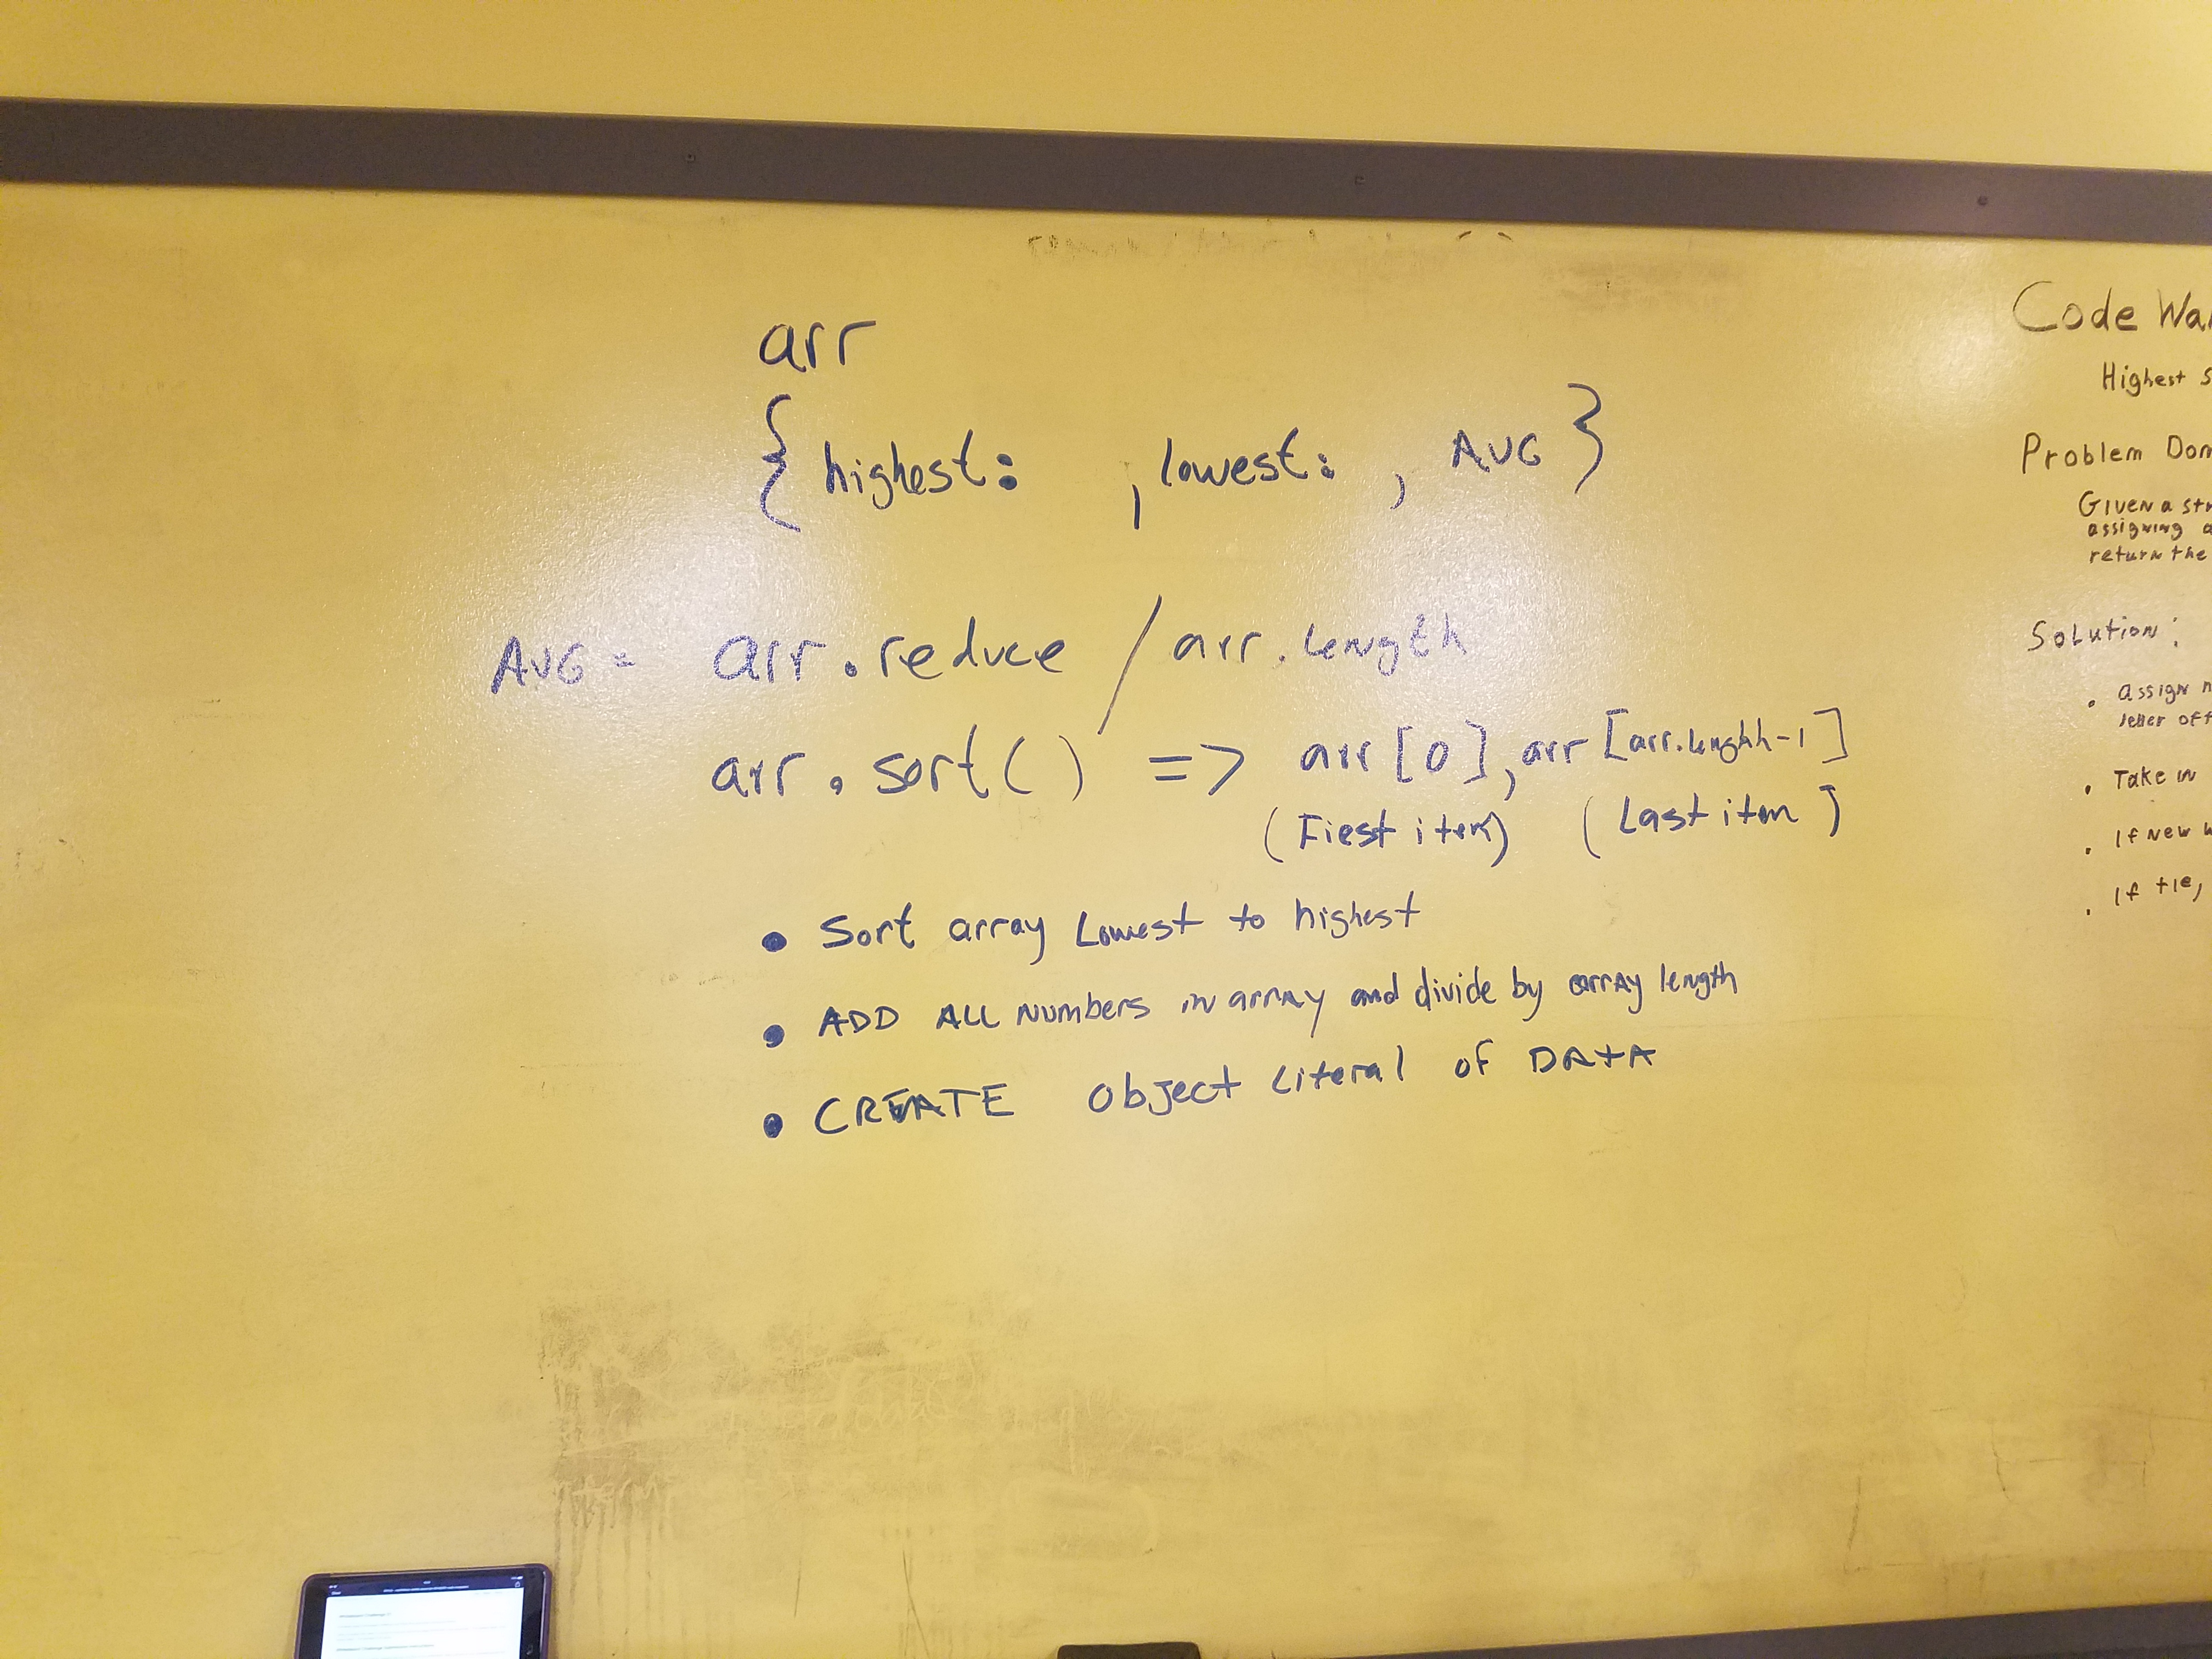 arr
{ highest: , lowest: , AVG }
AVG = arr.reduce / arr.length
arr.sort() => arr[0], arr[arr.lenghh-1]
(Fiest item) (Last item)
• Sort array Lowest to highest
• ADD ALL Numbers in array and divide by array length
• CREATE Object Literal of DATA
Code War
Highest S
Problem Dom
Given a str
assigning a
return the
Solution:
• assign n
letter off
• Take in
• If New w
• If tie,